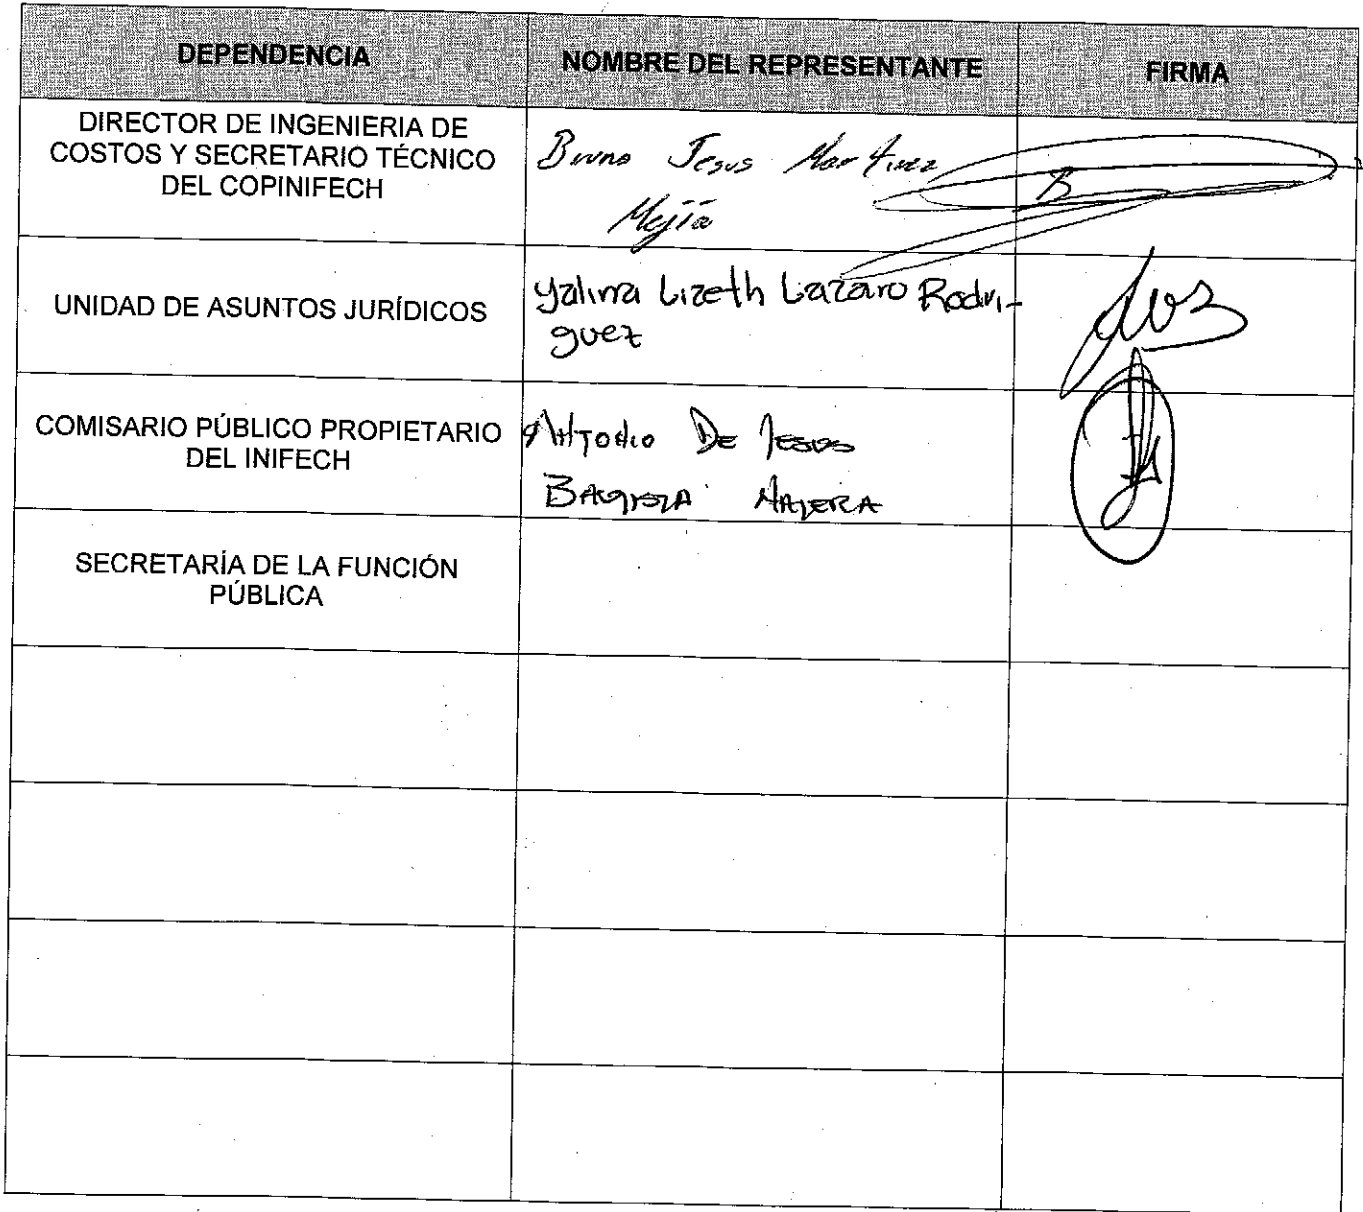 DEPENDENCIA NOMBRE DEL REPRESENTANTE FIRMA
DIRECTOR DE INGENIERIA DE
COSTOS Y SECRETARIO TÉCNICO
DEL COPINIFECH
Bruno Jesus Martinez
Mejía
UNIDAD DE ASUNTOS JURÍDICOS
Yalima Lizeth Lazaro Rodri-
guez
COMISARIO PÚBLICO PROPIETARIO
DEL INIFECH
ANTONIO DE JESUS
BAUTISTA NAJERA
SECRETARÍA DE LA FUNCIÓN
PÚBLICA